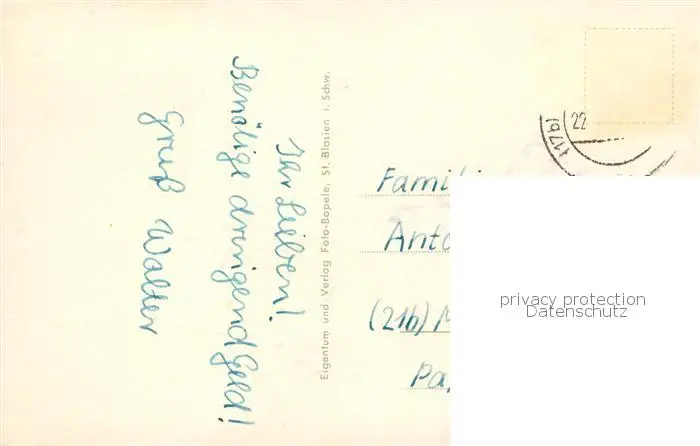 Ihr Lieben!
Benötige dringend Geld!
Gruß Walter
Eigentum und Verlag Foto-Bopele, St. Blasien i. Schw.
22
(17b)
(21b)
privacy protection
Datenschutz